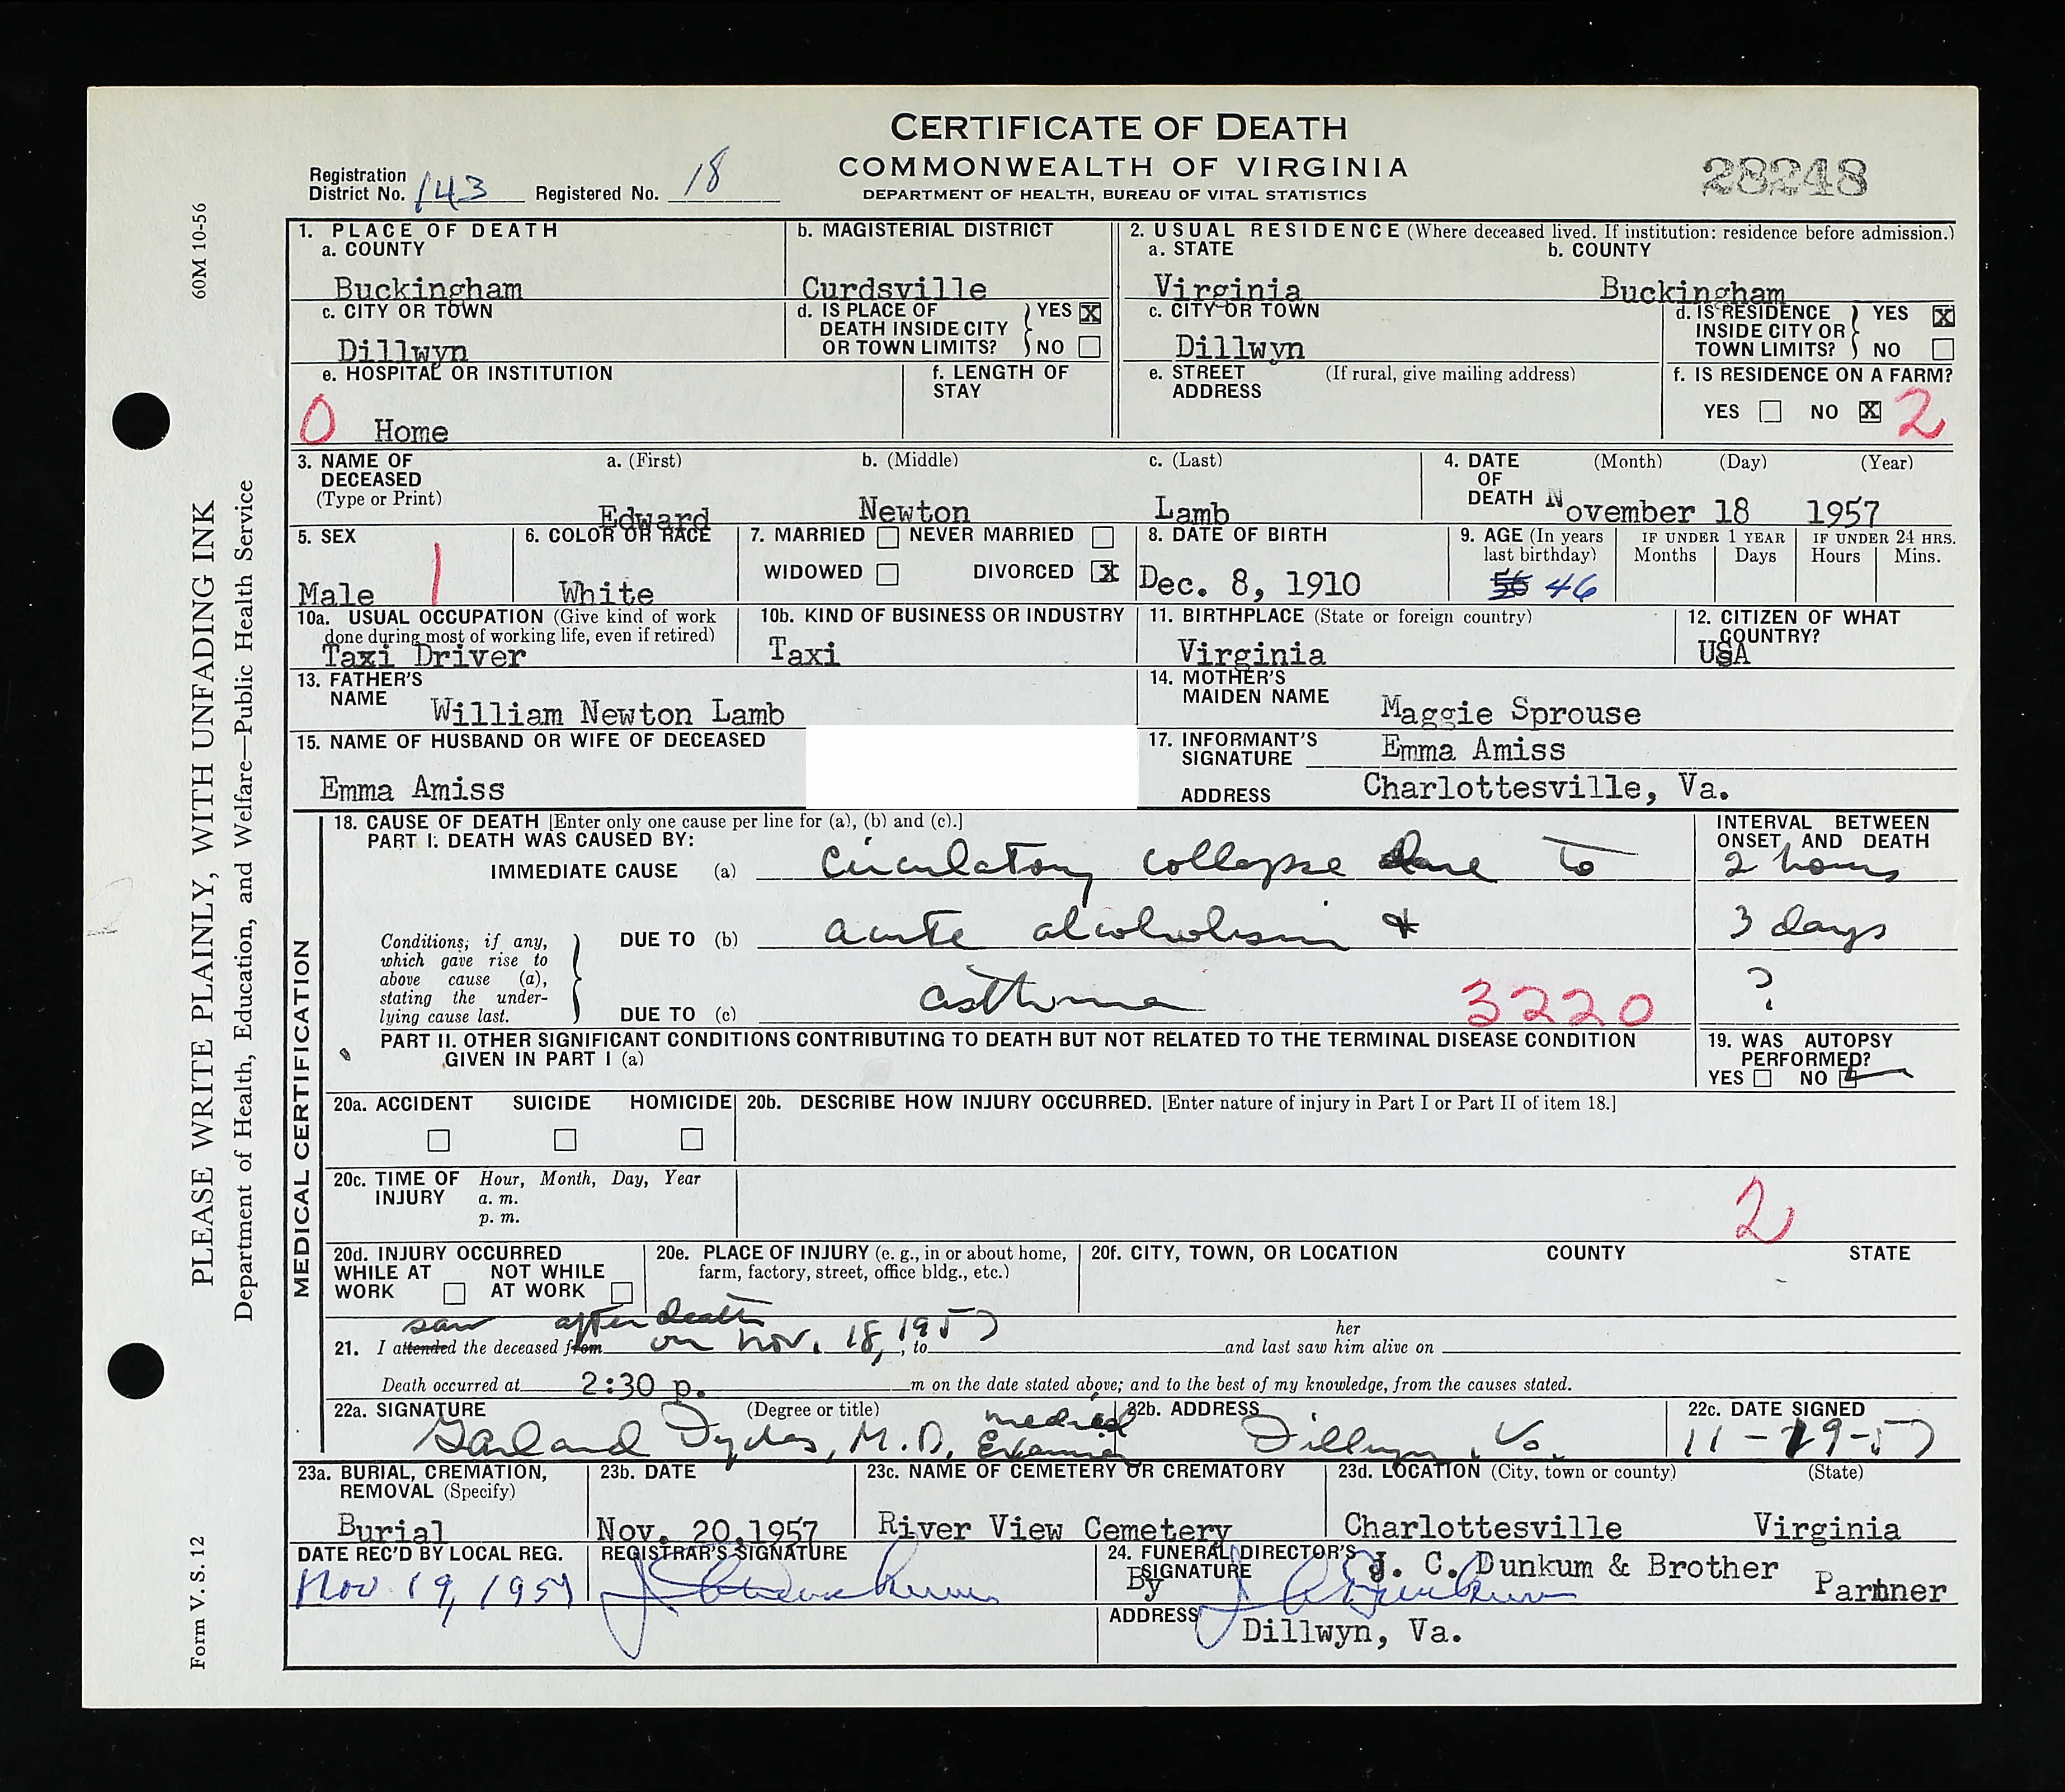 CERTIFICATE OF DEATH
COMMONWEALTH OF VIRGINIA
DEPARTMENT OF HEALTH, BUREAU OF VITAL STATISTICS
28248
Registration District No. 143 Registered No. 18
60M 10-56
PLEASE WRITE PLAINLY, WITH UNFADING INK
Department of Health, Education, and Welfare—Public Health Service
Form V. S. 12
1. PLACE OF DEATH
a. COUNTY
Buckingham
b. MAGISTERIAL DISTRICT
Curdsville
2. USUAL RESIDENCE (Where deceased lived. If institution: residence before admission.)
a. STATE
Virginia
b. COUNTY
Buckingham
c. CITY OR TOWN
Dillwyn
d. IS PLACE OF DEATH INSIDE CITY OR TOWN LIMITS? YES X NO
c. CITY OR TOWN
Dillwyn
d. IS RESIDENCE INSIDE CITY OR TOWN LIMITS? YES X NO
e. HOSPITAL OR INSTITUTION
0 Home
f. LENGTH OF STAY
e. STREET ADDRESS (If rural, give mailing address)
f. IS RESIDENCE ON A FARM?
YES NO X 2
3. NAME OF DECEASED (Type or Print)
a. (First) b. (Middle) c. (Last)
Edward Newton Lamb
4. DATE OF DEATH (Month) (Day) (Year)
November 18 1957
5. SEX
Male 1
6. COLOR OR RACE
White
7. MARRIED NEVER MARRIED
WIDOWED DIVORCED X
8. DATE OF BIRTH
Dec. 8, 1910
9. AGE (In years last birthday)
56 46
IF UNDER 1 YEAR
Months Days
IF UNDER 24 HRS.
Hours Mins.
10a. USUAL OCCUPATION (Give kind of work done during most of working life, even if retired)
Taxi Driver
10b. KIND OF BUSINESS OR INDUSTRY
Taxi
11. BIRTHPLACE (State or foreign country)
Virginia
12. CITIZEN OF WHAT COUNTRY?
USA
13. FATHER'S NAME
William Newton Lamb
14. MOTHER'S MAIDEN NAME
Maggie Sprouse
15. NAME OF HUSBAND OR WIFE OF DECEASED
Emma Amiss
17. INFORMANT'S SIGNATURE
Emma Amiss
ADDRESS Charlottesville, Va.
MEDICAL CERTIFICATION
18. CAUSE OF DEATH [Enter only one cause per line for (a), (b) and (c).]
PART I. DEATH WAS CAUSED BY:
INTERVAL BETWEEN ONSET AND DEATH
IMMEDIATE CAUSE (a) Circulatory collapse due to 2 hours
Conditions, if any, which gave rise to above cause (a), stating the underlying cause last.
DUE TO (b) acute alcoholism & 3 days
DUE TO (c) asthma 3220 ?
PART II. OTHER SIGNIFICANT CONDITIONS CONTRIBUTING TO DEATH BUT NOT RELATED TO THE TERMINAL DISEASE CONDITION GIVEN IN PART I (a)
19. WAS AUTOPSY PERFORMED?
YES NO
20a. ACCIDENT SUICIDE HOMICIDE
20b. DESCRIBE HOW INJURY OCCURRED. [Enter nature of injury in Part I or Part II of item 18.]
20c. TIME OF INJURY Hour, Month, Day, Year
a. m.
p. m.
2
20d. INJURY OCCURRED
WHILE AT WORK NOT WHILE AT WORK
20e. PLACE OF INJURY (e. g., in or about home, farm, factory, street, office bldg., etc.)
20f. CITY, TOWN, OR LOCATION COUNTY STATE
saw after death
21. I attended the deceased from on Nov. 18, 1957, to and last saw her him alive on
Death occurred at 2:30 p. m on the date stated above; and to the best of my knowledge, from the causes stated.
22a. SIGNATURE (Degree or title)
Garland Dyches, M.D. Medical Examiner
22b. ADDRESS
Dillwyn, Va.
22c. DATE SIGNED
11-19-57
23a. BURIAL, CREMATION, REMOVAL (Specify)
Burial
23b. DATE
Nov. 20,1957
23c. NAME OF CEMETERY OR CREMATORY
River View Cemetery
23d. LOCATION (City, town or county) (State)
Charlottesville Virginia
DATE REC'D BY LOCAL REG.
Nov 19, 1957
REGISTRAR'S SIGNATURE
24. FUNERAL DIRECTOR'S SIGNATURE
J. C. Dunkum & Brother
By Partner
ADDRESS
Dillwyn, Va.